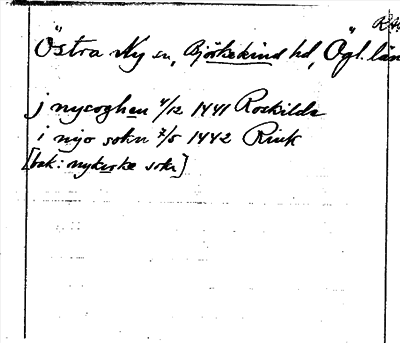 RAp
Östra Ny sn, Björkekind hd, Ögl. län
j nycoghen 4/12 1441 Roskilde
i nyo sokn 7/5 1442 Rink
[bak: nykirke sokn]